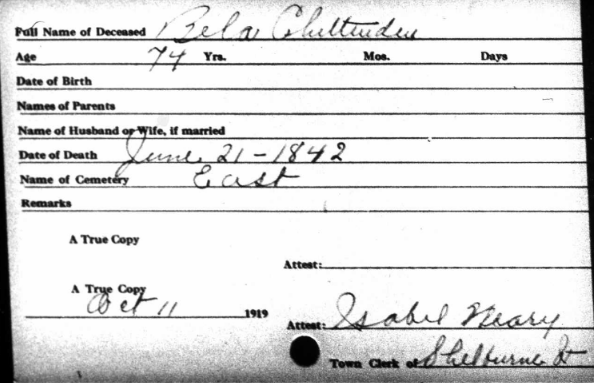 Full Name of Deceased Bela Chittenden
Age 74 Yrs. Mos. Days
Date of Birth
Names of Parents
Name of Husband or Wife, if married
Date of Death June 21-1842
Name of Cemetery East
Remarks
A True Copy
Attest:
A True Copy
Oct 11 1919
Attest: Isabel Neary
Town Clerk of Shelburne Vt